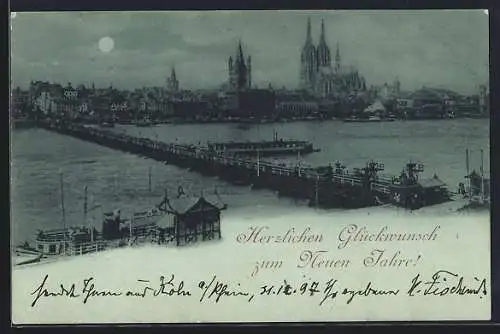 Herzlichen Glückwunsch
zum Neuen Jahre!
sendet Ihnen aus Köln a/Rhein, 31.12.97 Ihr ergebener